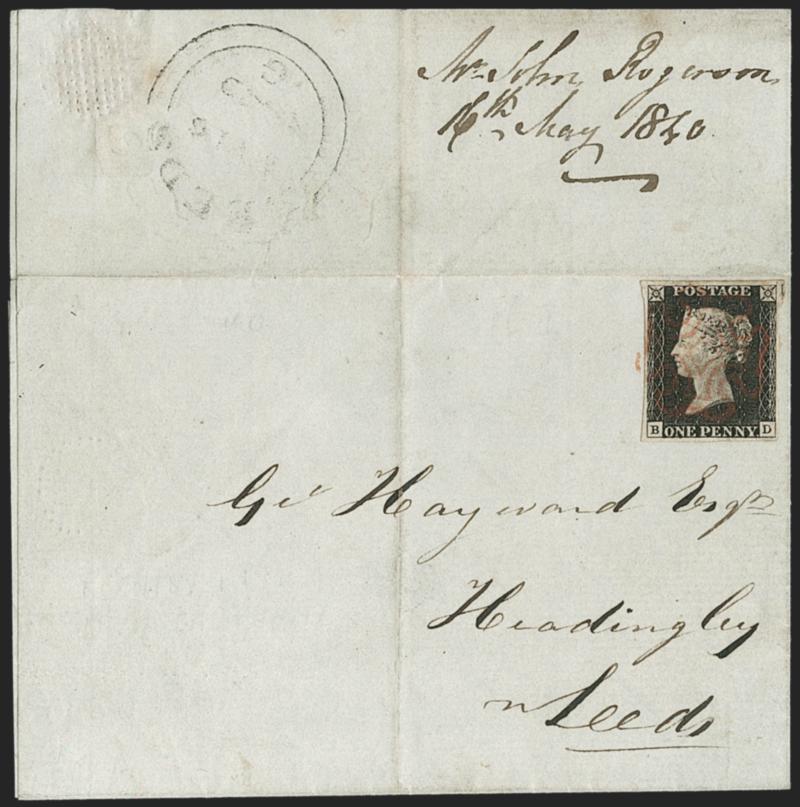 Mr John Rogerson
16th May 1840
LEEDS
POSTAGE
B ONE PENNY D
Geo Hayward Esqr
Headingley
n Leeds